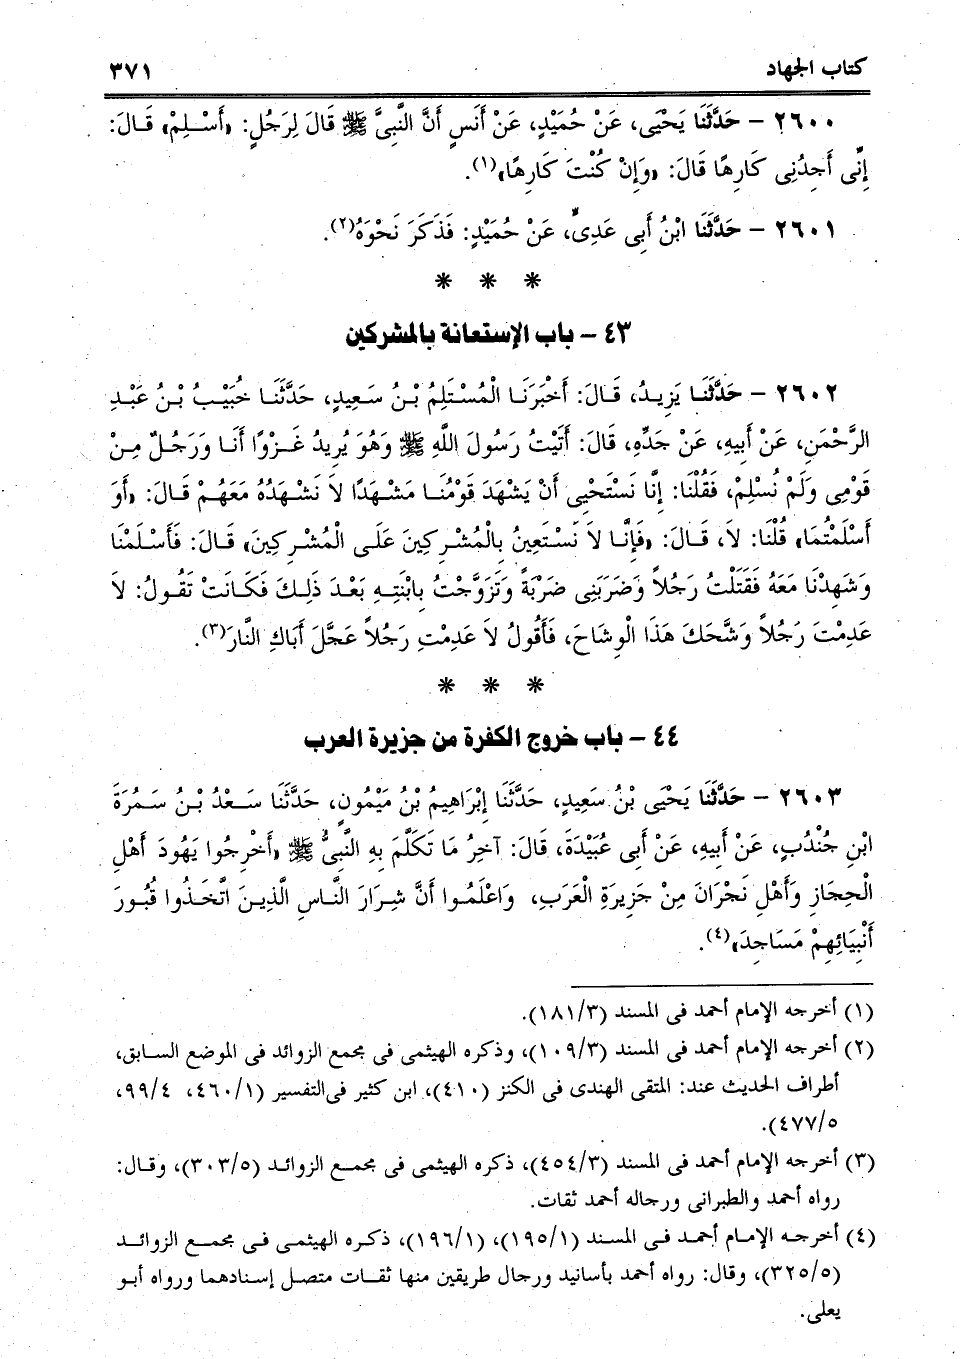 كتاب الجهاد ٣٧١
٢٦٠٠ – حَدَّثَنَا يَحْيَى، عَنْ حُمَيْدٍ، عَنْ أَنَسٍ أَنَّ النَّبِىَّ ﷺ قَالَ لِرَجُلٍ: «أَسْلِمْ» قَالَ:
إِنِّى أَجِدُنِى كَارِهًا قَالَ: «وَإِنْ كُنْتَ كَارِهًا»(١).
٢٦٠١ – حَدَّثَنَا ابْنُ أَبِى عَدِىٍّ، عَنْ حُمَيْدٍ: فَذَكَرَ نَحْوَهُ(٢).
* * *
٤٣ – باب الإستعانة بالمشركين
٢٦٠٢ – حَدَّثَنَا يَزِيدُ، قَالَ: أَخْبَرَنَا الْمُسْتَلِمُ بْنُ سَعِيدٍ، حَدَّثَنَا خُبَيْبُ بْنُ عَبْدِ
الرَّحْمَنِ، عَنْ أَبِيهِ، عَنْ جَدِّهِ، قَالَ: أَتَيْتُ رَسُولَ اللَّهِ ﷺ وَهُوَ يُرِيدُ غَزْوًا أَنَا وَرَجُلٌ مِنْ
قَوْمِى وَلَمْ نُسْلِمْ، فَقُلْنَا: إِنَّا نَسْتَحْيِى أَنْ يَشْهَدَ قَوْمُنَا مَشْهَدًا لاَ نَشْهَدُهُ مَعَهُمْ قَالَ: «أَوَ
أَسْلَمْتُمَا» قُلْنَا: لاَ، قَالَ: «فَإِنَّا لاَ نَسْتَعِينُ بِالْمُشْرِكِينَ عَلَى الْمُشْرِكِينَ» قَالَ: فَأَسْلَمْنَا
وَشَهِدْنَا مَعَهُ فَقَتَلْتُ رَجُلاً وَضَرَبَنِى ضَرْبَةً وَتَزَوَّجْتُ بِابْنَتِهِ بَعْدَ ذَلِكَ فَكَانَتْ تَقُولُ: لاَ
عَدِمْتَ رَجُلاً وَشَّحَكَ هَذَا الْوِشَاحَ، فَأَقُولُ لاَ عَدِمْتِ رَجُلاً عَجَّلَ أَبَاكِ النَّارَ(٣).
* * *
٤٤ – باب خروج الكفرة من جزيرة العرب
٢٦٠٣ – حَدَّثَنَا يَحْيَى بْنُ سَعِيدٍ، حَدَّثَنَا إِبْرَاهِيمُ بْنُ مَيْمُونٍ، حَدَّثَنَا سَعْدُ بْنُ سَمُرَةَ
ابْنِ جُنْدُبٍ، عَنْ أَبِيهِ، عَنْ أَبِى عُبَيْدَةَ، قَالَ: آخِرُ مَا تَكَلَّمَ بِهِ النَّبِىُّ ﷺ «أَخْرِجُوا يَهُودَ أَهْلِ
الْحِجَازِ وَأَهْلِ نَجْرَانَ مِنْ جَزِيرَةِ الْعَرَبِ، وَاعْلَمُوا أَنَّ شِرَارَ النَّاسِ الَّذِينَ اتَّخَذُوا قُبُورَ
أَنْبِيَائِهِمْ مَسَاجِدَ»(٤).
(١) أخرجه الإمام أحمد فى المسند (١٨١/٣).
(٢) أخرجه الإمام أحمد فى المسند (١٠٩/٣)، وذكره الهيثمى فى مجمع الزوائد فى الموضع السابق،
أطراف الحديث عند: المتقى الهندى فى الكنز (٤١٠)، ابن كثير فى التفسير (٤٦٠/١، ٩٩/٤،
٤٧٧/٥).
(٣) أخرجه الإمام أحمد فى المسند (٤٥٤/٣)، ذكره الهيثمى فى مجمع الزوائد (٣٠٣/٥)، وقال:
رواه أحمد والطبرانى ورجاله أحمد ثقات.
(٤) أخرجه الإمام أحمد فى المسند (١٩٥/١)، (١٩٦/١)، ذكره الهيثمى فى مجمع الزوائد
(٣٢٥/٥)، وقال: رواه أحمد بأسانيد ورجال طريقين منها ثقات متصل إسنادهما ورواه أبو
يعلى.